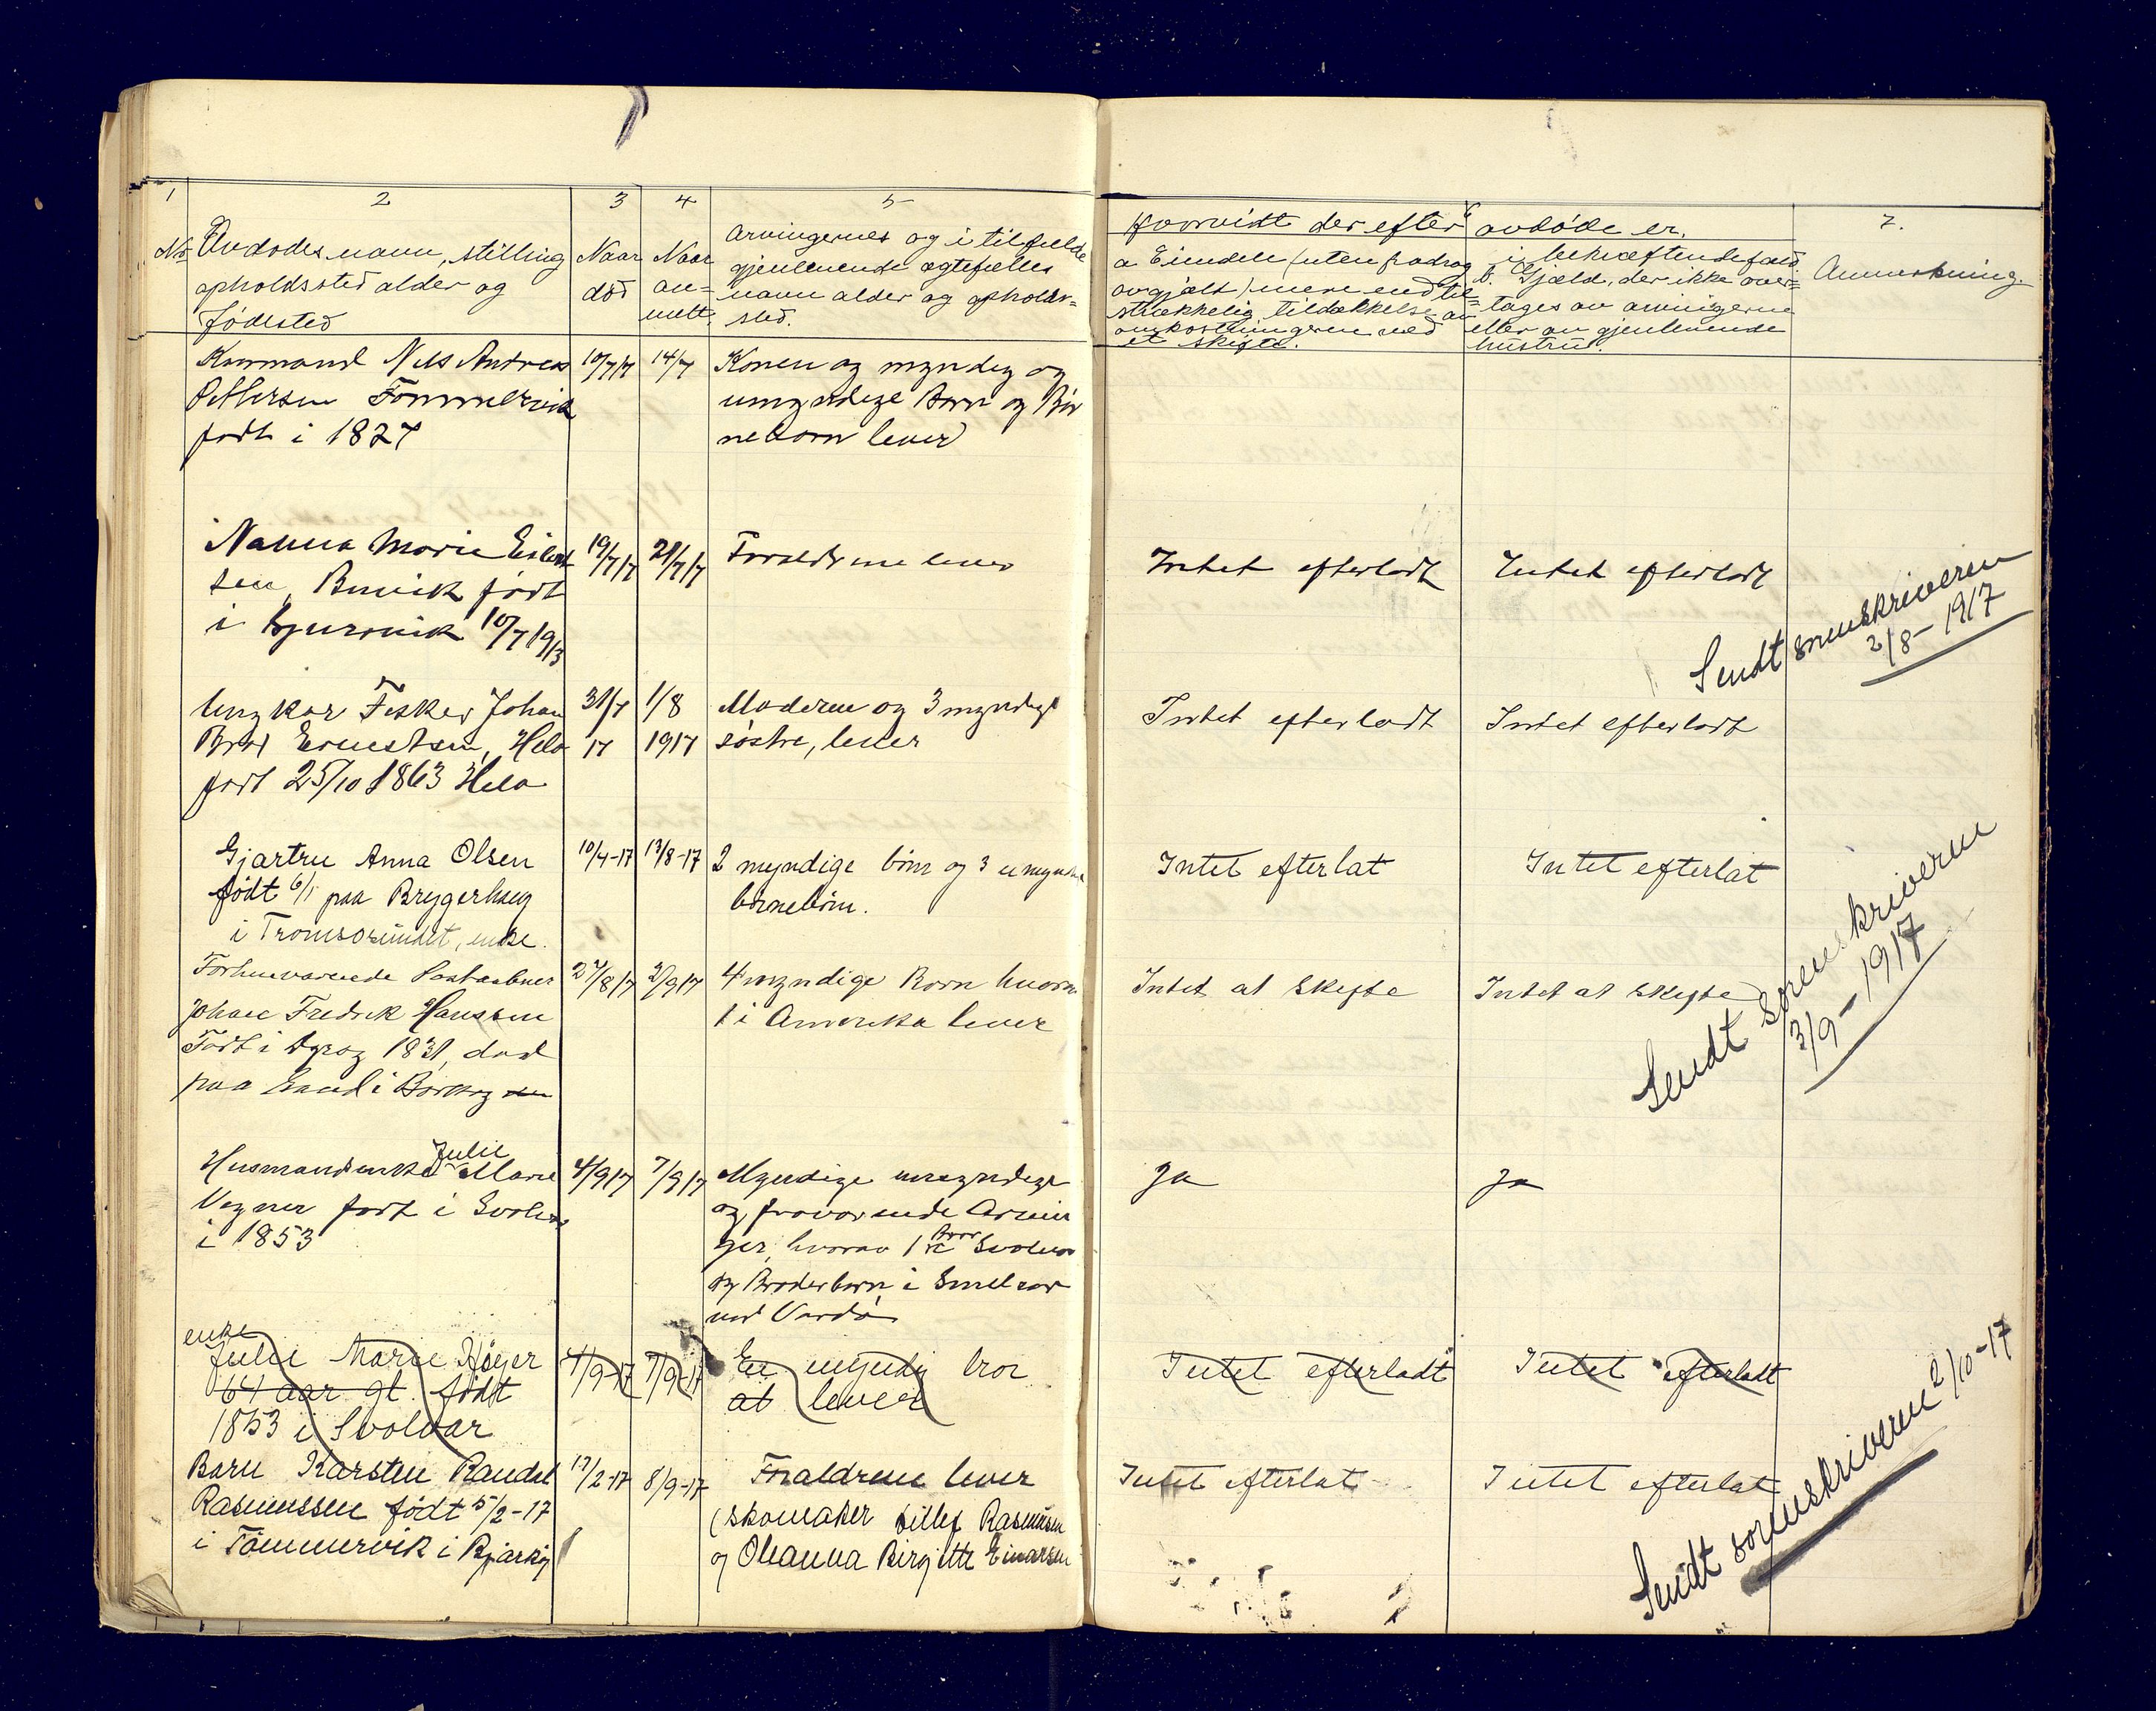 1
2
3
4
5
No
Avdødes navn, stilling
opholdssted alder og
fødested
Naar
død
Naar
an-
meldt
Arvingernes og i tilfælde
gjenlevende ægtefælles
navn alder og opholds-
sted.
6
Hvorvidt der efter avdøde er.
a Eiendele (uten fradrag
av gjæld) mere end til-
strækkelig til dækkelse av
omkostningerne ved
et skifte.
i bekræftende fald
b. Gjæld, der ikke over-
tages av arvingerne
eller av gjenlevende
hustru.
7.
Anmerkning.
Nils Andreas
Tømmervik
født i 1827
10/7 17
14/7
Konen og myndig og
umyndige Born og Bør
neborn lever
Nanna Marie
sen, født
i 10/7 1913
19/7 17
21/7 17
Forældrene lever
Intet efterladt
Intet efterladt
Sendt sorenskriveren
2/8-1917
Ungkar Fisker Johan
født 25/10 1863
31/7
17
1/8
1917
Moderen og 3 myndige
søstre, lever
Intet efterladt
Intet efterladt
Gjartru Anna Olsen
født 6/1 paa Bryggerhaug
i Tromsøsundet, enke.
10/7-17
13/8-17
2 myndige børn og 3 umyndige
børnebørn.
Intet efterlat
Intet efterlat
Forhenværende Postaabner
Johan Fredrik Hanssen
Født i 1831, død
paa Sand i
27/8 17
2/9 17
4 myndige Born hvorav
1 i Amerika lever
Intet at skifte
Intet at skifte
Sendt Sorenskriveren
3/9-1917
Julie
Husmandsenke Marie
født i Svolvær
i 1853
4/9 17
7/9 17
Myndige umyndige
og fraværende Arvin
ger, hvorav 1 Bror Svolvær
og Broderbørn i
ved Vardø
Ja
Ja
enke
Julie Marie Høyer
64 aar gl. født
1853 i Svolvær
4/9-17
7/9-17
En myndig bror
at lever
Intet efterladt
Intet efterladt
Barn Karsten Randel
Rasmussen født 5/2-17
i Tømmervik i Bjarkøy
17/2-17
8/9-17
Forældrene lever
(skomaker Rasmussen
og Oleanna Birgitte Einarsen
Intet efterlat
Intet efterlat
Sendt sorenskriveren 2/10-17